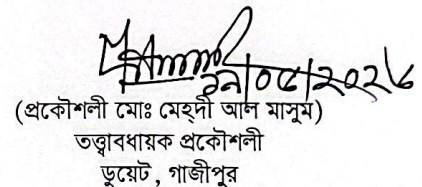 (প্রকৌশলী মোঃ মেহ্দী আল মাসুম)
তত্ত্বাবধায়ক প্রকৌশলী
ডুয়েট, গাজীপুর